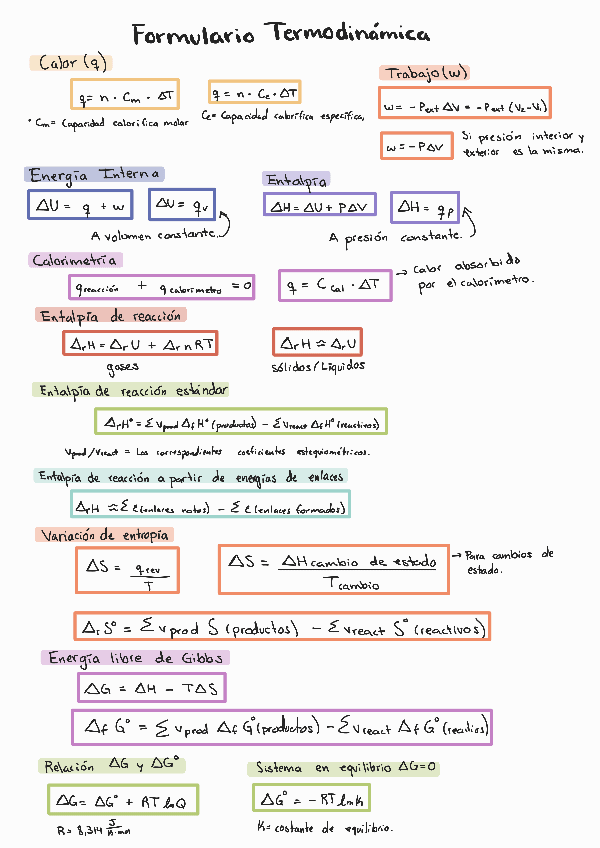 Formulario Termodinámica
Calor (q)
q = n · Cm · ΔT
q = n · Ce · ΔT
* Cm = Capacidad calorífica molar
Ce = Capacidad calorífica específica,
Trabajo (w)
w = - Pext ΔV = - Pext (V2 - V1)
w = - PΔV
Si presión interior y
exterior es la misma.
Energía Interna
ΔU = q + w
ΔU = qv
A volumen constante.
Entalpía
ΔH = ΔU + PΔV
ΔH = qp
A presión constante.
Calorimetría
qreacción + qcalorimetro = 0
q = Ccal · ΔT
→ Calor absorbido
por el calorímetro.
Entalpía de reacción
ΔrH = ΔrU + ΔrnRT
gases
ΔrH ≈ ΔrU
sólidos / Líquidos
Entalpía de reacción estándar
ΔrH° = Σ νprod ΔfH° (productos) - Σ νreact ΔfH° (reactivos)
νprod / νreact = Los correspondientes coeficientes estequiométricos.
Entalpía de reacción a partir de energías de enlaces
ΔrH ≈ Σ ε (enlaces rotos) - Σ ε (enlaces formados)
Variación de entropía
ΔS = qrev / T
ΔS = ΔH cambio de estado / T cambio
→ Para cambios de
estado.
ΔrS° = Σ νprod S (productos) - Σ νreact S° (reactivos)
Energía libre de Gibbs
ΔG = ΔH - TΔS
ΔfG° = Σ νprod ΔfG° (productos) - Σ νreact ΔfG° (reactivos)
Relación ΔG y ΔG°
ΔG = ΔG° + RT ln Q
R = 8,314 J / K·mol
Sistema en equilibrio ΔG = 0
ΔG° = - RT ln K
K = costante de equilibrio.